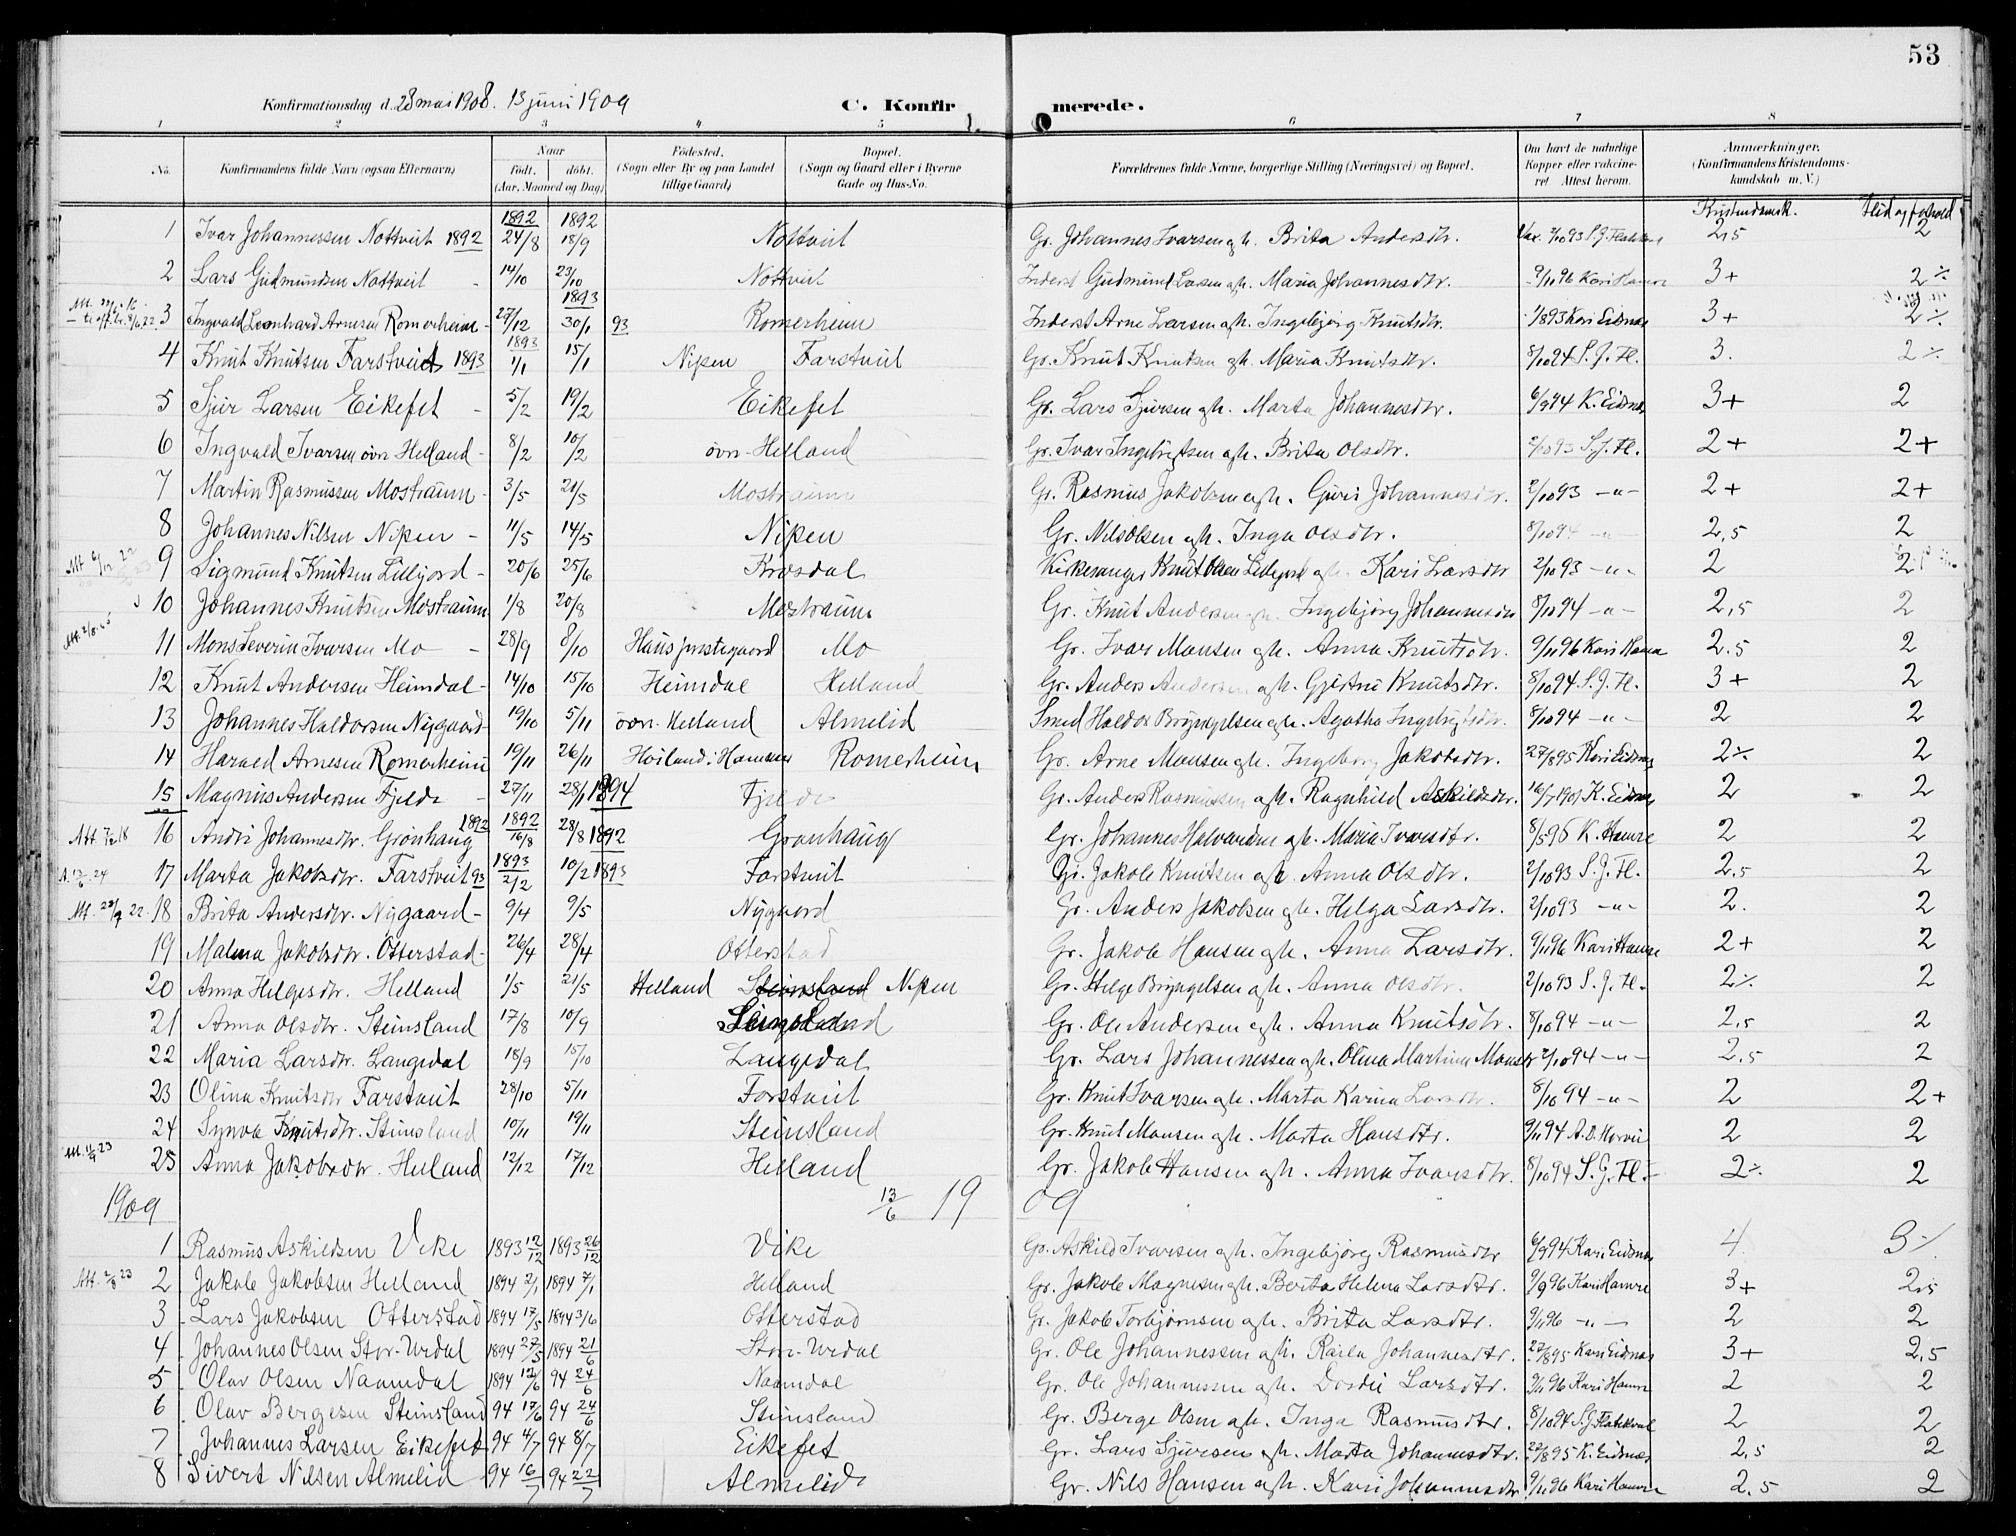 53
Konfirmationsdag d. 28 mai 1908. 13 juni 1909 C. Konfirmerede.
1 2 3 4 5 6 7 8
No. Konfirmandens fulde Navn (ogsaa Efternavn) Naar født. døbt. (Aar, Maaned og Dag) Fødested. (Sogn eller By og paa Landet tillige Gaard) Bopæl. (Sogn og Gaard eller i Byerne Gade og Hus-No. Forældrenes fulde Navne, borgerlige Stilling (Næringsvei) og Bopæl. Om havt de naturlige Kopper eller vakcineret. Attest herom. Anmærkninger. (Konfirmandens Kristendomskundskab m. V.)
Kristendomsk. Flid og forhold
1 Ivar Johannessen Nottveit 1892 1892 24/8 1892 18/9 Nottveit Gr. Johannes Ivarsen gh. Brita Andersdtr. Vax. 2/10 93 S. J. Flatekval 2,5 2
2 Lars Gudmundsen Nottveit - 14/10 23/10 Nottveit Inderst Gudmund Larsen gh. Maria Johannesdtr. 9/11 96 Kari Hamre 3+ 2 ÷
3 Ingvald Leonhard Arnesen Romerheim - 27/12 1893 30/1 93 Romerheim Inderst Arne Larsen gh. Ingebjørg Knutsdtr. 1/8 93 Kari Eidsnes 3+ 2 ÷
4 Knut Knutsen Farstveit 1893 1893 1/1 15/1 Nipen Farstveit Gr. Knut Knutsen gh. Maria Knutsdtr. 8/10 94 S. J. Fl. 3. 2 ÷
5 Sjur Larsen Eikefet - 5/2 19/2 Eikefet Gr. Lars Sjursen gh. Marta Johannesdtr. 6/9 94 K. Eidsnes 3+ 2
6 Ingvald Ivarsen øvn Helland - 8/2 10/2 øvn-Helland Gr. Ivar Ingebrigtsen gh. Brita Olsdtr. 2/10 93 S. J. Fl. 2+ 2+
7 Martin Rasmussen Mostraum - 3/5 21/5 Mostraum Gr. Rasmus Jakobsen gh. Guri Johannesdtr. 2/10 93 -"- 2+ 2+
8 Johannes Nilsen Nipen - 11/5 14/5 Nipen Gr. Nils Olsen gh. Inga Olsdtr. 8/10 94 -"- 2,5 2
9 Sigmund Knutsen Lillejord - 20/6 25/6 Krosdal Kirkesanger Knut Olsen Lillejord gh. Kari Larsdtr 2/10 93 -"- 2 2
10 Johannes Knutsen Mostraum 1/8 20/8 Mostraum Gr. Knut Andersen gh. Ingebjørg Johannesdtr 8/10 94 -"- 2,5 2
11 Mons Severin Ivarsen Mo - 28/9 8/10 Haus prestegaard Mo Gr. Ivar Monsen gh. Anna Knutsdtr. 9/11 96 Kari Hamre 2,5 2
12 Knut Andersen Heimdal - 14/10 15/10 Heimdal Helland Gr. Anders Andersen gh. Gjertru Knutsdtr. 8/10 94 S. J. Fl. 3+ 2
13 Johannes Haldorsen Nygaard - 19/10 5/11 øvn. Helland Almelid Smed Haldor Brynjelsen gh. Agatha Ingebrigtsdtr. 8/10 94 -"- 2 2
14 Harald Arnesen Romerheim 19/11 26/11 Høiland i Hammer Romerheim Gr. Arne Monsen gh. Ingeborg Jakobsdtr. 27/8 95 Kari Eidsnes 2 ÷ 2
15 Magnus Andersen Fjelde - 27/11 28/1 1894 Fjelde Gr. Anders Rasmussen gh. Ragnhild Askildsdtr. 16/7 1901 K. Eidsnes 2 2
Att. 7/2 18 16 Andri Johannesdtr. Grønhaug 1892 1892 16/8 28/8 1892 Grønhaug Gr. Johannes Halvardsen gh. Maria Ivarsdtr. 8/5 96 K. Hamre 2 2
17 Marta Jakobsdtr. Farstveit 93 1893 2/2 10/2 1893 Farstveit Gr. Jakob Knutsen gh. Anna Olsdtr. 2/10 93 S. J. Fl. 2,5 2
18 Brita Andersdtr. Nygaard - 9/4 9/5 Nygaard Gr. Anders Jakobsen gh. Helga Larsdtr. 2/10 93 -"- 2. 2
19 Malena Jakobsdtr. Otterstad - 26/4 28/4 Otterstad Gr. Jakob Hansen gh. Anna Larsdtr. 9/11 96 Kari Hamre 2+ 2
20 Anna Helgesdtr. Helland 1/5 21/5 Helland Steinsland Nipen Gr. Helge Brynjelsen gh. Anna Olsdtr. 2/10 93 S. J. Fl. 2 ÷ 2
21 Anna Olsdtr. Steinsland 17/8 10/9 Steinsland Gr. Ole Andersen gh. Anna Knutsdtr. 8/10 94 -"- 2,5 2
22 Maria Larsdtr. Langedal 18/9 15/10 Langedal Gr. Lars Johannessen gh. Olina Martina Monsdtr 2/10 94 -"- 2,5 2
23 Olina Knutsdtr Farstveit 28/10 5/11 Farstveit Gr. Knut Ivarsen gh. Marta Karina Larsdtr. 8/10 94 -"- 2 2+
24 Synva Knutsdtr. Steinsland 10/11 19/11 Steinsland Gr. Knut Monsen gh. Marta Hansdtr. 9/11 94 2 2
25 Anna Jakobsdtr. Helland 12/12 17/12 Helland Gr. Jakob Hansen gh. Anna Ivarsdtr. 8/10 94 S. J. Fl. 2 ÷ 2
1909 13/6 1909
1 Rasmus Askildsen Vike 1893 12/12 1893 26/12 Vike Gr. Askild Ivarsen gh. Ingebjørg Rasmusdtr 6/9 94 Kari Eidsnes 4 3 ÷
Att. 2/8 23 2 Jakob Jakobsen Helland 1894 2/1 1894 7/1 Helland Gr. Jakob Magnesen gh. Berta Helena Larsdtr. 9/9 96 Kari Hamre 3+ 2,5
3 Lars Jakobsen Otterstad 1894 17/5 1894 3/6 Otterstad Gr. Jakob Torbjørnsen gh. Brita Larsdtr. 9/11 96 -"- 2 2
4 Johannes Olsen Stor-Urdal 1894 27/5 1894 21/6 Stor-Urdal Gr. Ole Johannessen gh. Raila Johannesdtr. 27/8 95 Kari Eidsnes 3+ 2,5
5 Olav Olsen Naamdal 1894 12/6 94 24/6 Naamdal Gr. Ole Johannessen gh. Dordei Larsdtr. 9/11 96 Kari Hamre 2 2
6 Olav Bergesen Steinsland 94 17/6 94 24/6 Steinsland Gr. Berge Olsen gh. Inga Rasmusdtr. 8/10 94 S. J. Flatekval 2 2
7 Johannes Larsen Eikefet 94 4/7 94 8/7 Eikefet Gr. Lars Sjursen gh. Marta Johannesdtr. 27/8 95 K. Eidsnes 2,5 2
8 Sivert Nilsen Almelid 94 16/7 94 22/7 Almelid Gr. Nils Hansen gh. Kari Johannesdtr 9/11 96 Kari Hamre 2,5 2